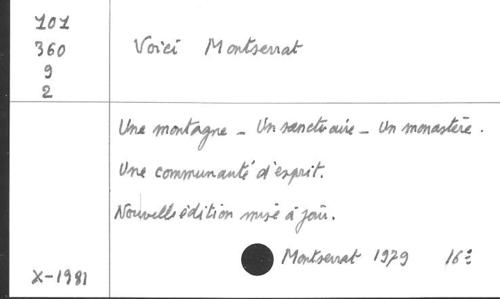 101
360
9
2
Voici Montserrat
Une montagne - Un sanctuaire - Un monastère.
Une communauté d'esprit.
Nouvelle édition mise à jour.
Montserrat 1979 16º
X-1981